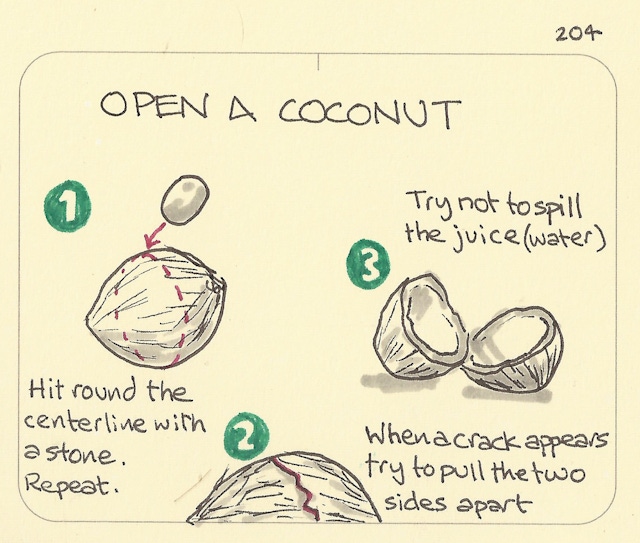 204
OPEN A COCONUT
1
Hit round the
centerline with
a stone.
Repeat.
2
When a crack appears
try to pull the two
sides apart
3
Try not to spill
the juice (water)